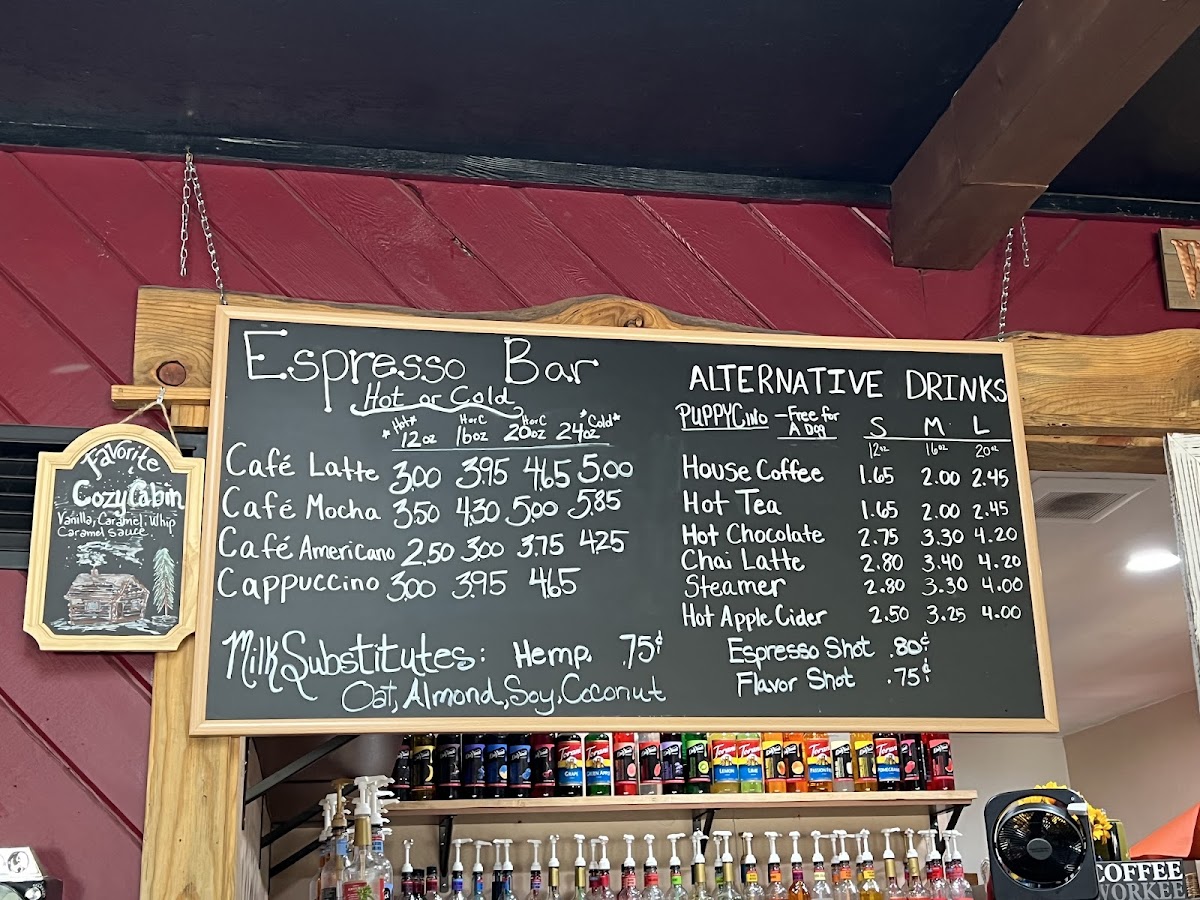 Espresso Bar
Hot or Cold
*Hot* HorC HorC *Cold*
12oz 16oz 20oz 24oz
Café Latte 3.00 3.95 4.65 5.00
Café Mocha 3.50 4.30 5.00 5.85
Café Americano 2.50 3.00 3.75 4.25
Cappuccino 3.00 3.95 4.65
Milk Substitutes: Hemp .75¢
Oat, Almond, Soy, Coconut
ALTERNATIVE DRINKS
PUPPYCINO - Free for
A Dog
S M L
12oz 16oz 20oz
House Coffee 1.65 2.00 2.45
Hot Tea 1.65 2.00 2.45
Hot Chocolate 2.75 3.30 4.20
Chai Latte 2.80 3.40 4.20
Steamer 2.80 3.30 4.00
Hot Apple Cider 2.50 3.25 4.00
Espresso Shot .80¢
Flavor Shot .75¢
Favorite
Cozy Cabin
Vanilla, Caramel, Whip
Caramel Sauce
Torani
GRAPE
Torani
GREEN APPLE
Torani
LEMON
Torani
LIME
Torani
Torani
COFFEE